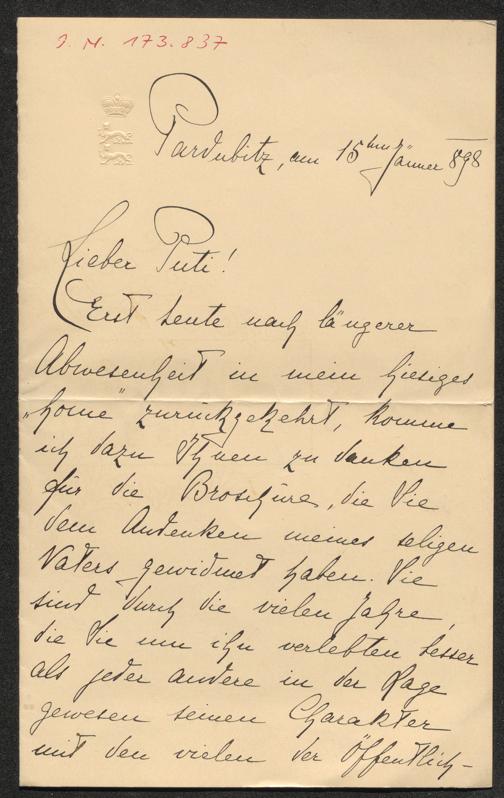 J. N. 173.837
Pardubitz, am 15ten Jänner 898
Lieber Puti!
Erst heute nach längerer
Abwesenheit in mein hiesiges
„home" zurückgekehrt, komme
ich dazu Ihnen zu danken
für die Broschüre, die Sie
dem Andenken meines seligen
Vaters gewidmet haben. Sie
sind durch die vielen Jahre,
die Sie um ihn verlebten besser
als jeder andere in der Lage
gewesen seinen Charakter
mit den vielen der Öffentlich-